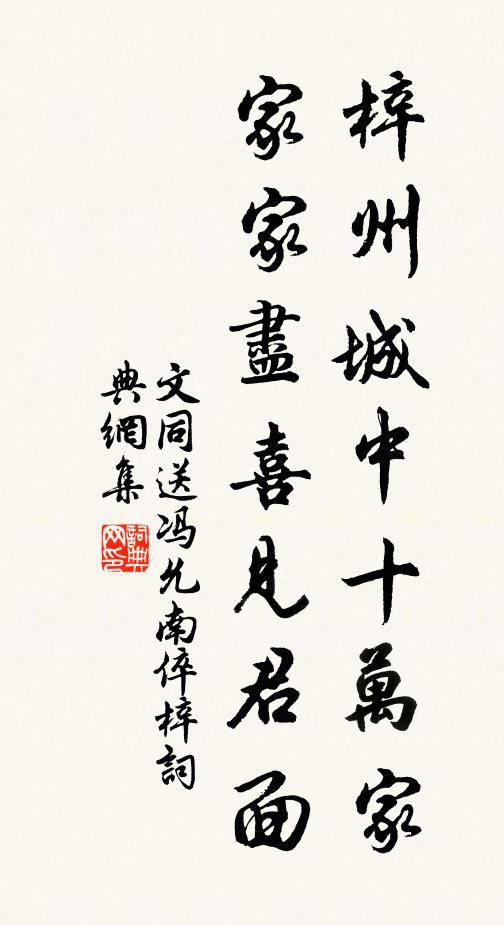 梓州城中十萬家
家家盡喜見君面
文同送冯允南倅梓詞
典網集
詞典网印